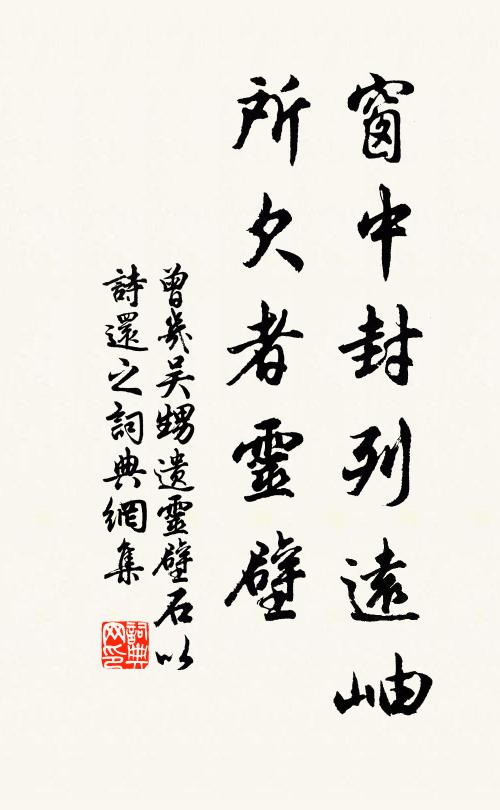 窗中封列遠岫
所欠者靈壁
曾幾吳甥遺靈壁石以
詩還之詞典網集
詞典
网印